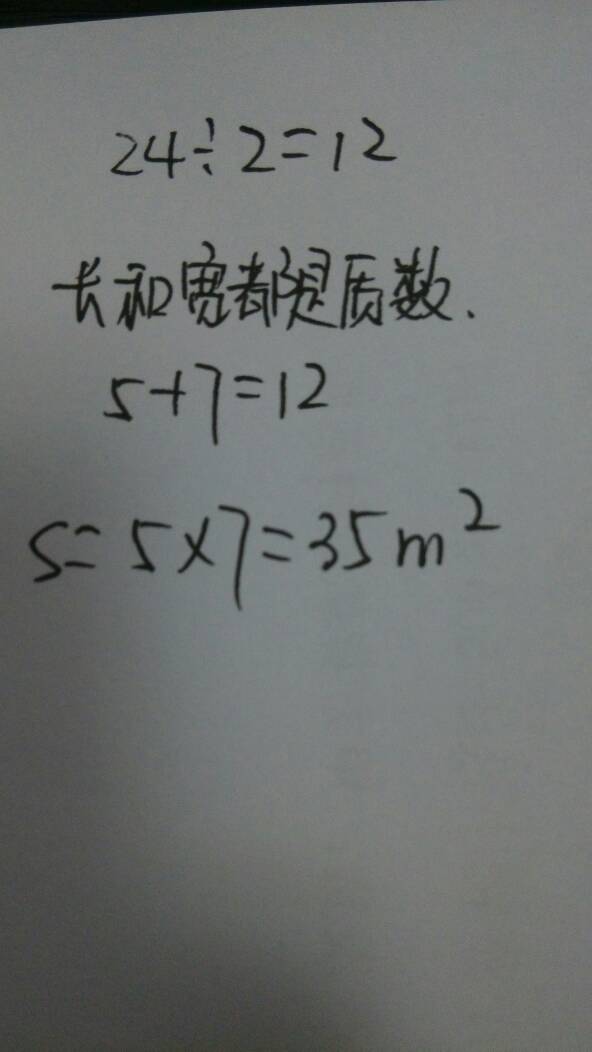 24÷2=12
长和宽都是质数.
5+7=12
S=5×7=35m²